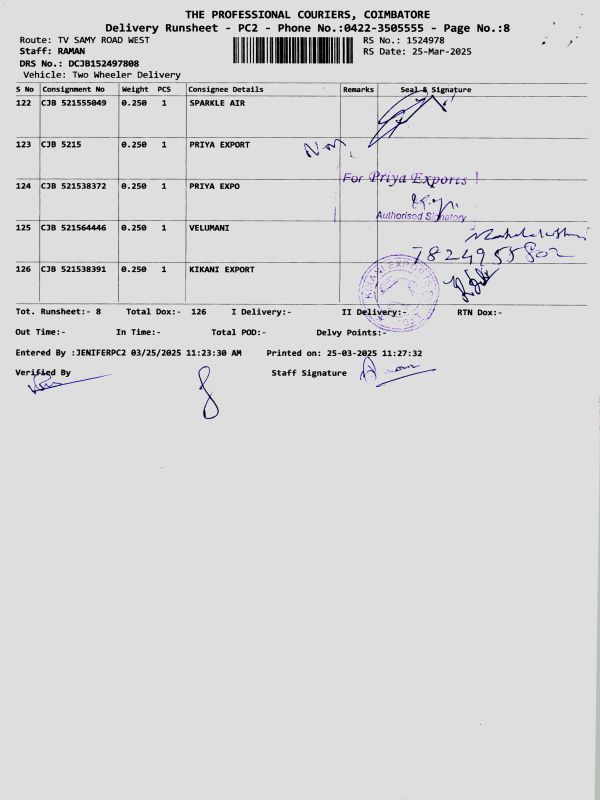 THE PROFESSIONAL COURIERS, COIMBATORE
Delivery Runsheet - PC2 - Phone No.:0422-3505555 - Page No.:8
Route: TV SAMY ROAD WEST RS No.: 1524978
Staff: RAMAN RS Date: 25-Mar-2025
DRS No.: DCJB152497808
Vehicle: Two Wheeler Delivery
S No Consignment No Weight PCS Consignee Details Remarks Seal & Signature
122 CJB 521555049 0.250 1 SPARKLE AIR
123 CJB 5215 0.250 1 PRIYA EXPORT
For Priya Exports
124 CJB 521538372 0.250 1 PRIYA EXPO
Authorised Signatory
125 CJB 521564446 0.250 1 VELUMANI
Mahalakshmi
7824955802
126 CJB 521538391 0.250 1 KIKANI EXPORT
KIKANI EXPORTS
Tot. Runsheet:- 8 Total Dox:- 126 I Delivery:- II Delivery:- RTN Dox:-
Out Time:- In Time:- Total POD:- Delvy Points:-
Entered By :JENIFERPC2 03/25/2025 11:23:30 AM Printed on: 25-03-2025 11:27:32
Verified By Staff Signature